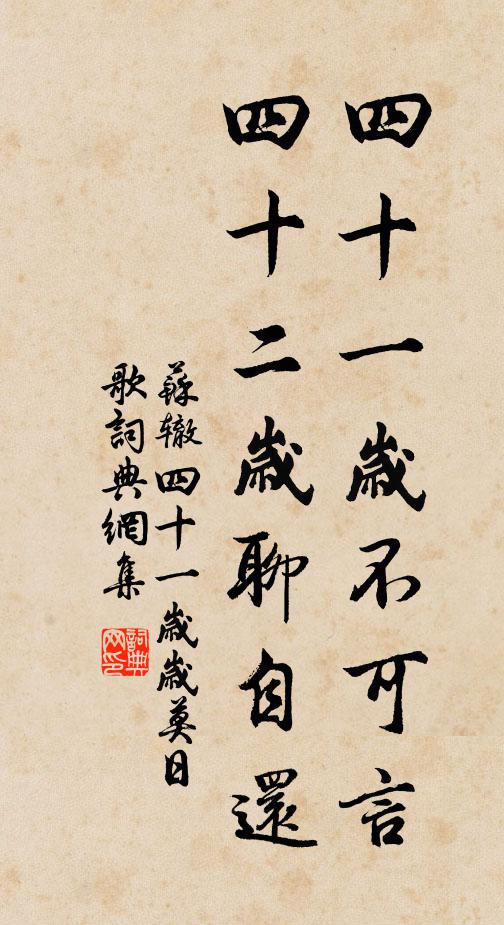 四十一歲不可言
四十二歲聊自還
蘇辙四十一歲歲莫日
歌詞典網集
詞典网印